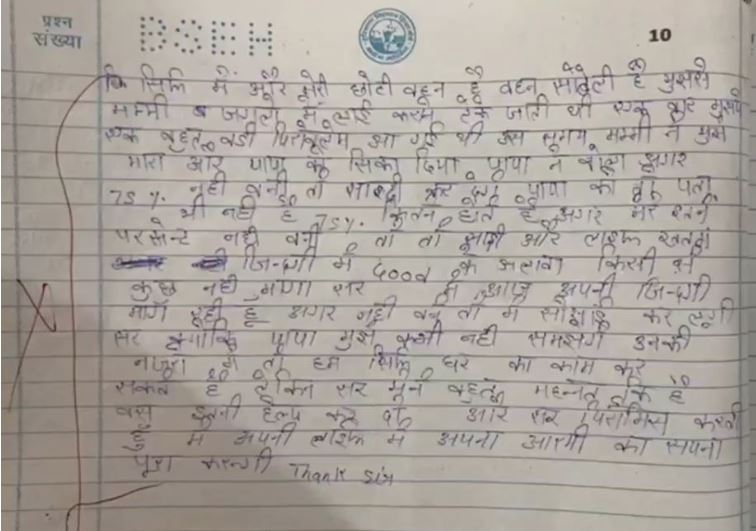 प्रश्न संख्या
BSEH
10
कि सिर्फ मैं और मेरी छोटी बहन है बहन सोतेली है मुझसे
मम्मी जगलो में लाई करने टेक जाती थी एक मुझपे
एक बहुत बडी आ गई थी उस समय मम्मी ने मुझे
मारा और पापा को सिका दिया पापा ने बोला अगर
75 %. नही बनी तो सादी कर दूगा पापा को पता
भी नही है 75%. कितने होते है अगर मेरे इतने
परसेन्ट नही बनी तो तो सादी और लाइफ खतम
जिन्दगी में Good के अलावा किसी से
कुछ नही मागा सर मैं आज अपनी जिन्दगी
माग रही हू अगर नही बने तो मैं सोसाइड कर लूगी
सर क्योकि पापा मुझे कभी नही समझेगे उनकी
नजरो में तो हम सिर्फ घर का काम कर
सकते है लेकिन सर मैने बहुत मेहनत कि है
बस इतनी हेल्प कर दो और सर पिरोमिस करती
हू मैं अपनी लाइफ में अपना आरमी का सपना
पूरा करुगी Thank Sir